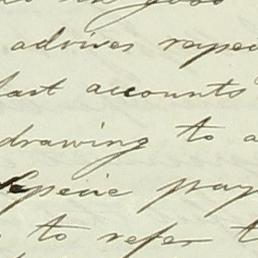 good
advices respec
last accounts
drawing to a
Specie pay
to refer t